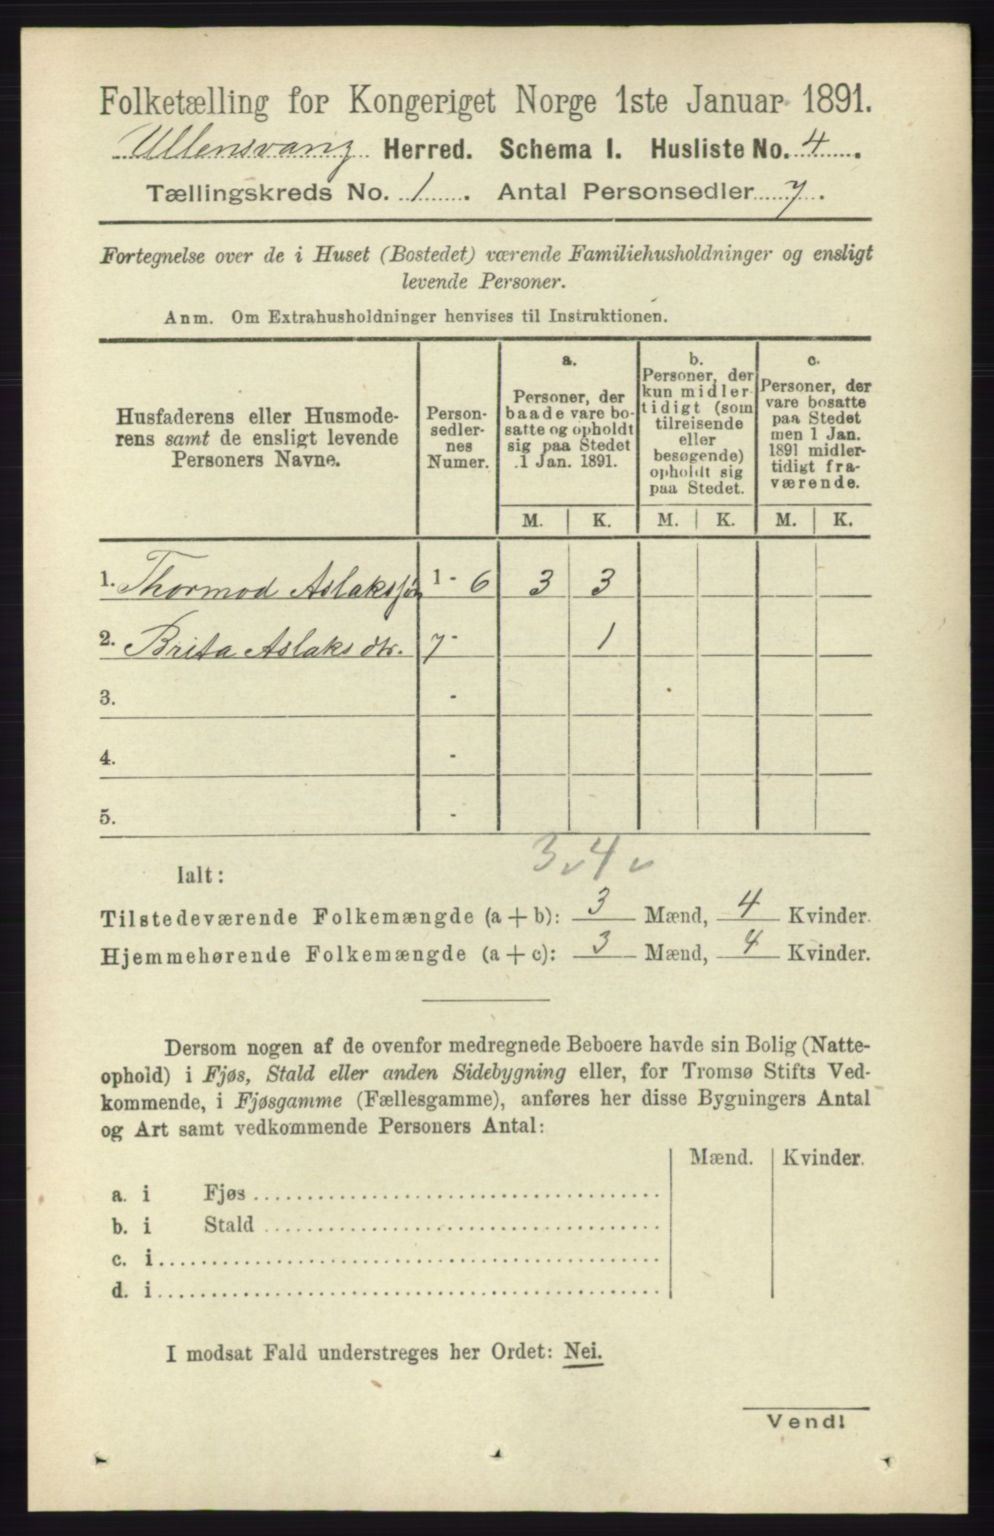 Folketælling for Kongeriget Norge 1ste Januar 1891.
Ullensvang Herred. Schema I. Husliste No. 4.
Tællingskreds No. 1. Antal Personsedler 7.
Fortegnelse over de i Huset (Bostedet) værende Familiehusholdninger og ensligt
levende Personer.
Anm. Om Extrahusholdninger henvises til Instruktionen.
Husfaderens eller Husmode-
rens samt de ensligt levende
Personers Navne.
Person-
sedler-
nes
Numer.
a.
Personer, der
baade vare bo-
satte og opholdt
sig paa Stedet
1 Jan. 1891.
b.
Personer, der
kun midler-
tidigt (som
tilreisende
eller
besøgende)
opholdt sig
paa Stedet.
c.
Personer, der
vare bosatte
paa Stedet
men 1 Jan.
1891 midler-
tidigt fra-
værende.
M. K. M. K. M. K.
1. Thormod Aslakssøn 1 - 6 3 3
2. Brita Aslaksdtr. 7 - 1
3. -
4. -
5. -
3 4
Ialt:
Tilstedeværende Folkemængde (a + b): 3 Mænd, 4 Kvinder.
Hjemmehørende Folkemængde (a + c): 3 Mænd, 4 Kvinder.
Dersom nogen af de ovenfor medregnede Beboere havde sin Bolig (Natte-
ophold) i Fjøs, Stald eller anden Sidebygning eller, for Tromsø Stifts Ved-
kommende, i Fjøsgamme (Fællesgamme), anføres her disse Bygningers Antal
og Art samt vedkommende Personers Antal:
Mænd. Kvinder.
a. i Fjøs
b. i Stald
c. i
d. i
I modsat Fald understreges her Ordet: Nei.
Vend!